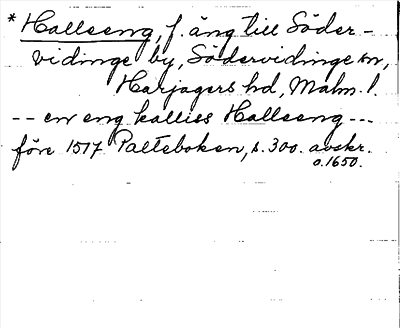 * Hallseng, f. äng till Söder-
vidinge by, Södervidinge sn,
Harjagers hd, Malm. l.
-- en eng kalliss Hallseng ---
före 1517 Palteboken, s. 300. avskr.
o. 1650.